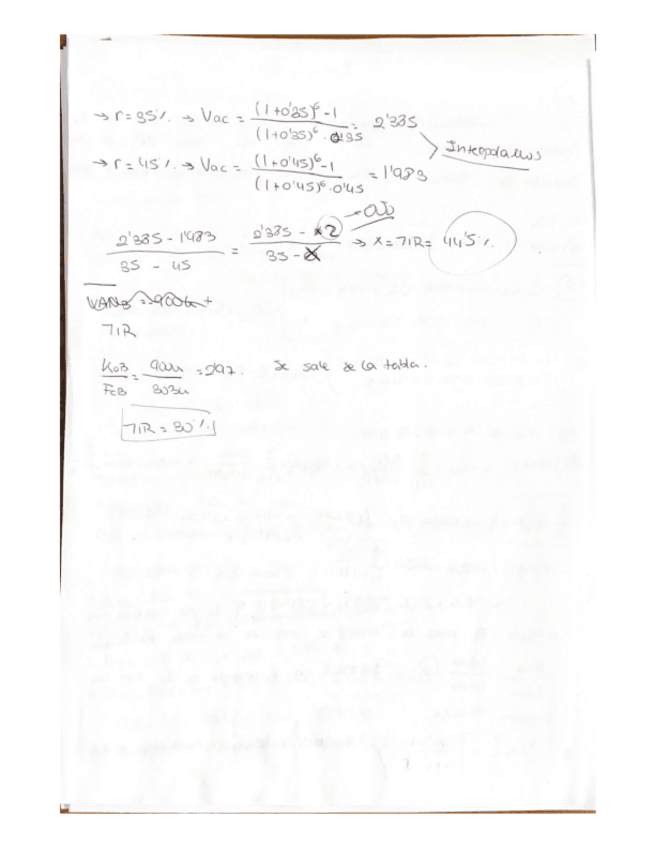 → r=35% → Vac = ((1+0'35)^6 -1)/((1+0'35)^6 · 0'35) = 2'385
→ r=45% → Vac = ((1+0'45)^6 -1)/((1+0'45)^6 · 0'45) = 1'983
Interpolamos
(2'385 - 1'983)/(35 - 45) = (2'385 - 2)/(35 - X) → X = TIR = 44'5%
→ OJO
VANB = 900u +
TIR
KOB/FCB = 900u/303u = 2'97. Se sale de la tabla.
TIR = 30%